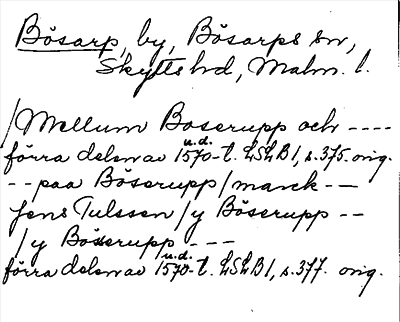 Bösarp, by, Bösarps sn,
Skytts hd, Malm. l.
/Mellum Boserupp och ----
förra delen av u.d. 1570-t. LSLB1, s.375. orig.
-- paa Böserupp/marck --
Jens Tulssen /y Böserupp --
/y Böserupp ---
förra delen av u.d. 1570-t. LSLB1, s.377. orig.